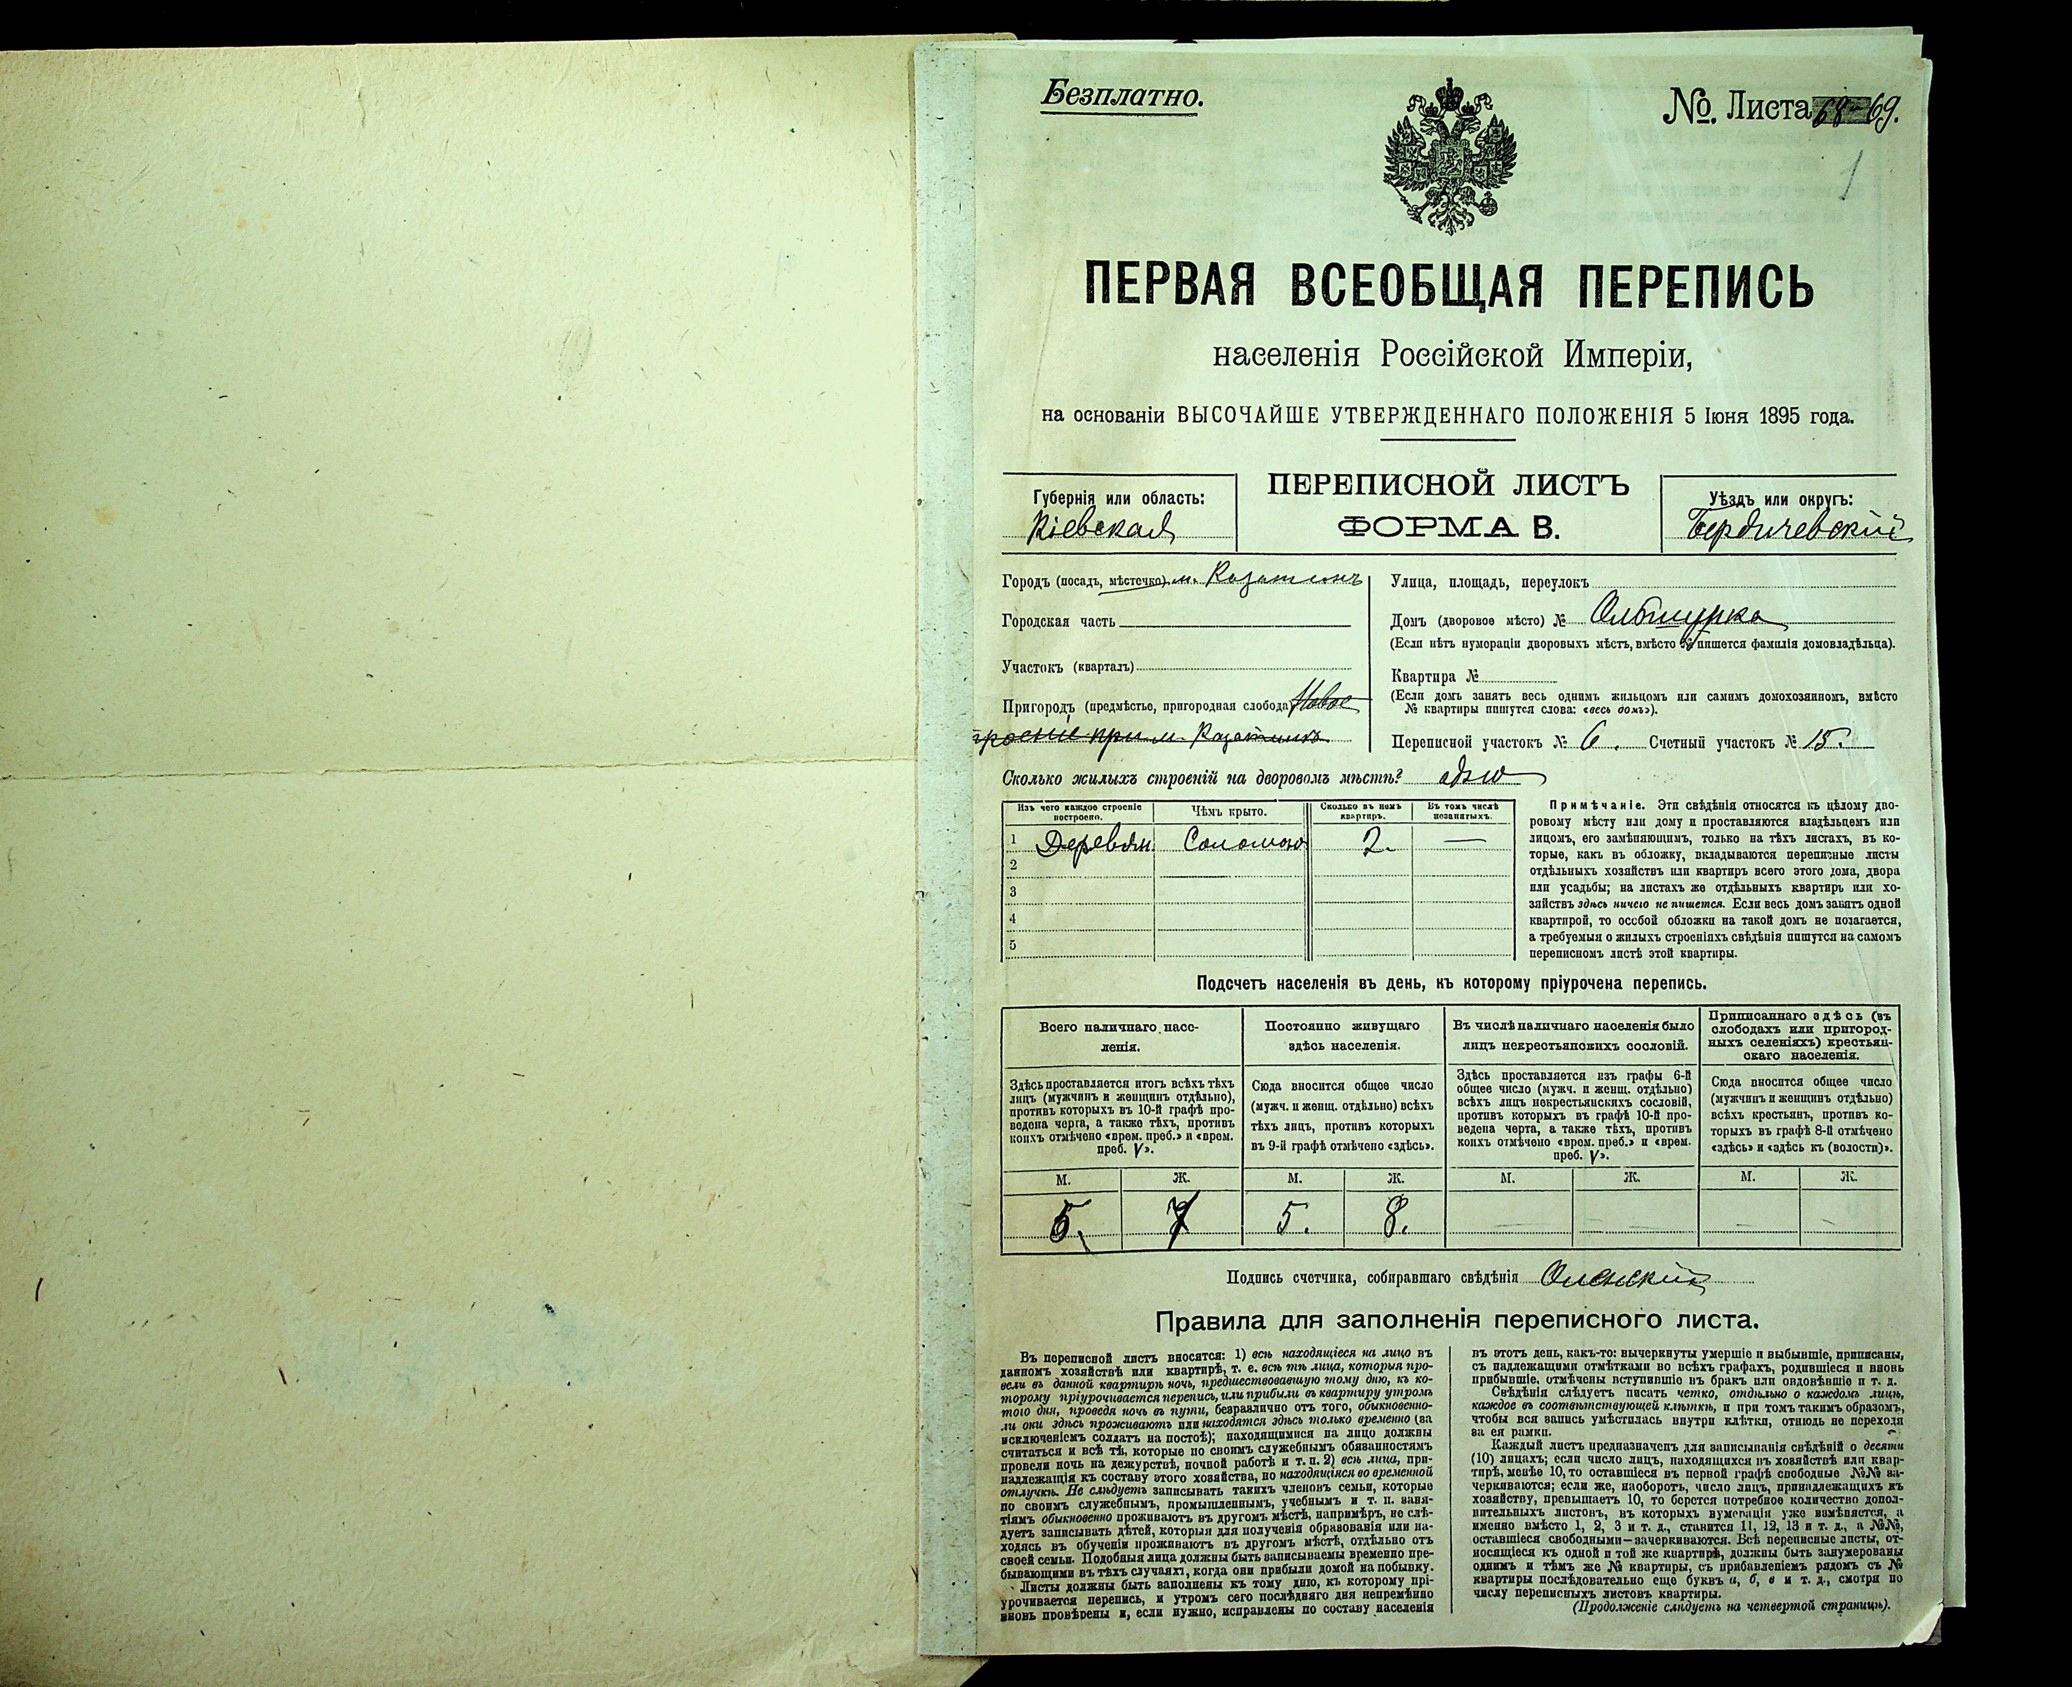 Безплатно.
№. Листа 68-69.
1
ПЕРВАЯ ВСЕОБЩАЯ ПЕРЕПИСЬ
населенія Россійской Имперіи,
на основаніи ВЫСОЧАЙШЕ УТВЕРЖДЕННАГО ПОЛОЖЕНІЯ 5 Іюня 1895 года.
Губернія или область:
Кіевская
ПЕРЕПИСНОЙ ЛИСТЪ
ФОРМА В.
Уѣздъ или округъ:
Бердичевскій
Городъ (посадъ, мѣстечко) м. Казатинъ
Городская часть
Участокъ (кварталъ)
Пригородъ (предмѣстье, пригородная слобода) Новое
строеніе при м. Казатинъ
Улица, площадь, переулокъ
Домъ (дворовое мѣсто) №
(Если нѣтъ нумераціи дворовыхъ мѣстъ, вмѣсто № пишется фамилія домовладѣльца).
Квартира №
(Если домъ занятъ весь однимъ жильцомъ или самимъ домохозяиномъ, вмѣсто
№ квартиры пишутся слова: «весь домъ»).
Переписной участокъ № 6. Счетный участокъ № 15.
Сколько жилыхъ строеній на дворовомъ мѣстѣ? одно
Изъ чего каждое строеніе
построено.
Чѣмъ крыто.
Сколько въ немъ
квартиръ.
Въ томъ числѣ
незанятыхъ.
1 Деревян. Соломою 2. —
2
3
4
5
Примѣчаніе. Эти свѣдѣнія относятся къ цѣлому дво-
ровому мѣсту или дому и проставляются владѣльцемъ или
лицомъ, его замѣняющимъ, только на тѣхъ листахъ, въ ко-
торые, какъ въ обложку, вкладываются переписные листы
отдѣльныхъ хозяйствъ или квартиръ всего этого дома, двора
или усадьбы; на листахъ же отдѣльныхъ квартиръ или хо-
зяйствъ здѣсь ничего не пишется. Если весь домъ занятъ одной
квартирой, то особой обложки на такой домъ не полагается,
а требуемыя о жилыхъ строеніяхъ свѣдѣнія пишутся на самомъ
переписномъ листѣ этой квартиры.
Подсчетъ населенія въ день, къ которому пріурочена перепись.
Всего наличнаго насе-
ленія.
Здѣсь проставляется итогъ всѣхъ тѣхъ
лицъ (мужчинъ и женщинъ отдѣльно),
противъ которыхъ въ 10-й графѣ про-
ведена черта, а также тѣхъ, противъ
коихъ отмѣчено «врем. преб.» и «врем.
преб. V».
Постоянно живущаго
здѣсь населенія.
Сюда вносится общее число
(мужч. и женщ. отдѣльно) всѣхъ
тѣхъ лицъ, противъ которыхъ
въ 9-й графѣ отмѣчено «здѣсь».
Въ числѣ наличнаго населенія было
лицъ некрестьянскихъ сословій.
Здѣсь проставляется изъ графы 6-й
общее число (мужч. и женщ. отдѣльно)
всѣхъ лицъ некрестьянскихъ сословій,
противъ которыхъ въ графѣ 10-й про-
ведена черта, а также тѣхъ, противъ
коихъ отмѣчено «врем. преб.» и «врем.
преб. V».
Приписаннаго здѣсь (въ
слободахъ или пригород-
ныхъ селеніяхъ) крестьян-
скаго населенія.
Сюда вносится общее число
(мужчинъ и женщинъ отдѣльно)
всѣхъ крестьянъ, противъ ко-
торыхъ въ графѣ 8-й отмѣчено
«здѣсь» и «здѣсь къ (волости)».
М. Ж. М. Ж. М. Ж. М. Ж.
5. 7 5. 8.
Подпись счетчика, собиравшаго свѣдѣнія
Правила для заполненія переписного листа.
Въ переписной листъ вносятся: 1) всѣ находящіеся на лицо въ
данномъ хозяйствѣ или квартирѣ, т. е. всѣ тѣ лица, которыя про-
вели въ данной квартирѣ ночь, предшествовавшую тому дню, къ ко-
торому пріурочивается перепись, или прибыли въ квартиру утромъ
того дня, проведя ночь въ пути, безразлично отъ того, обыкновенно-
ли они здѣсь проживаютъ или находятся здѣсь только временно (за
исключеніемъ солдатъ на постоѣ); находящимися на лицо должны
считаться и всѣ тѣ, которые по своимъ служебнымъ обязанностямъ
провели ночь на дежурствѣ, ночной работѣ и т. п. 2) всѣ лица, при-
надлежащія къ составу этого хозяйства, но находящіяся во временной
отлучкѣ. Не слѣдуетъ записывать такихъ членовъ семьи, которые
по своимъ служебнымъ, промышленнымъ, учебнымъ и т. п. заня-
тіямъ обыкновенно проживаютъ въ другомъ мѣстѣ, напримѣръ, не слѣ-
дуетъ записывать дѣтей, которыя для полученія образованія или на-
ходясь въ обученіи проживаютъ въ другомъ мѣстѣ, отдѣльно отъ
своей семьи. Подобныя лица должны быть записываемы временно пре-
бывающими въ тѣхъ случаяхъ, когда они прибыли домой на побывку.
Листы должны быть заполнены къ тому дню, къ которому прі-
урочивается перепись, и утромъ сего послѣдняго дня непремѣнно
вновь провѣрены и, если нужно, исправлены по составу населенія
въ этотъ день, какъ-то: вычеркнуты умершіе и выбывшіе, приписаны,
съ надлежащими отмѣтками во всѣхъ графахъ, родившіеся и вновь
прибывшіе, отмѣчены вступившіе въ бракъ или овдовѣвшіе и т. д.
Свѣдѣнія слѣдуетъ писать четко, отдѣльно о каждомъ лицѣ,
каждое въ соотвѣтствующей клѣткѣ, и при томъ такимъ образомъ,
чтобы вся запись умѣстилась внутри клѣтки, отнюдь не переходя
за ея рамки.
Каждый листъ предназначенъ для записыванія свѣдѣній о десяти
(10) лицахъ; если число лицъ, находящихся въ хозяйствѣ или квар-
тирѣ, менѣе 10, то оставшіеся въ первой графѣ свободные №№ за-
черкиваются; если же, наоборотъ, число лицъ, принадлежащихъ къ
хозяйству, превышаетъ 10, то берется потребное количество допол-
нительныхъ листовъ, въ которыхъ нумерація уже измѣняется, а
именно вмѣсто 1, 2, 3 и т. д., ставится 11, 12, 13 и т. д., а №№,
оставшіеся свободными—зачеркиваются. Всѣ переписные листы, от-
носящіеся къ одной и той же квартирѣ, должны быть занумерованы
однимъ и тѣмъ же № квартиры, съ прибавленіемъ рядомъ съ №
квартиры послѣдовательно еще буквъ а, б, в и т. д., смотря по
числу переписныхъ листовъ квартиры.
(Продолженіе слѣдуетъ на четвертой страницѣ).